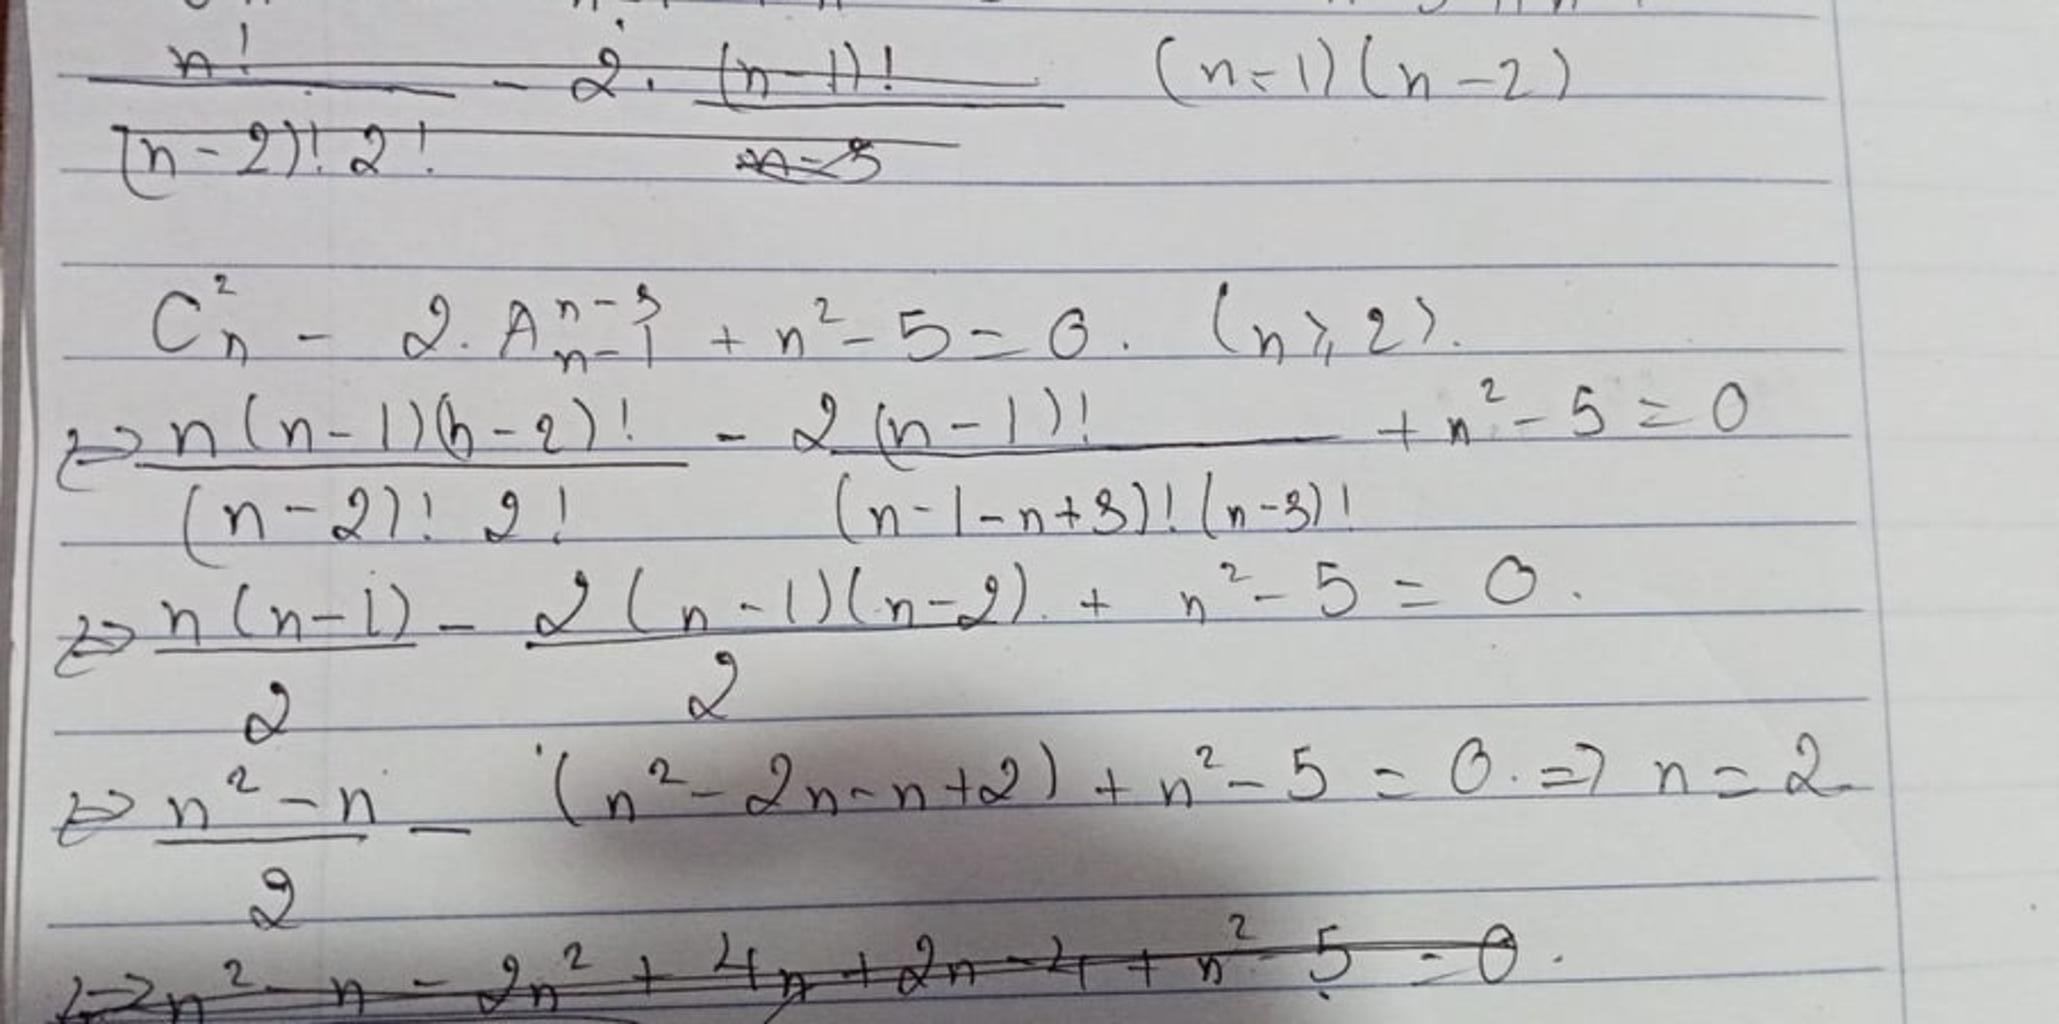 n! / (n-2)! 2! - 2. (n-1)! / n-3 (n-1)(n-2)
C_n^2 - 2. A_{n-1}^{n-3} + n^2 - 5 = 0. (n ⩾ 2).
⇔ n(n-1)(n-2)! / (n-2)! 2! - 2(n-1)! / (n-1-n+3)! (n-3)! + n^2 - 5 = 0
⇔ n(n-1) / 2 - 2(n-1)(n-2) / 2 + n^2 - 5 = 0.
⇔ n^2 - n / 2 - (n^2 - 2n - n + 2) + n^2 - 5 = 0. ⇒ n = 2
⇔ n^2 - n - 2n^2 + 4n + 2n - 4 + n^2 - 5 = 0.